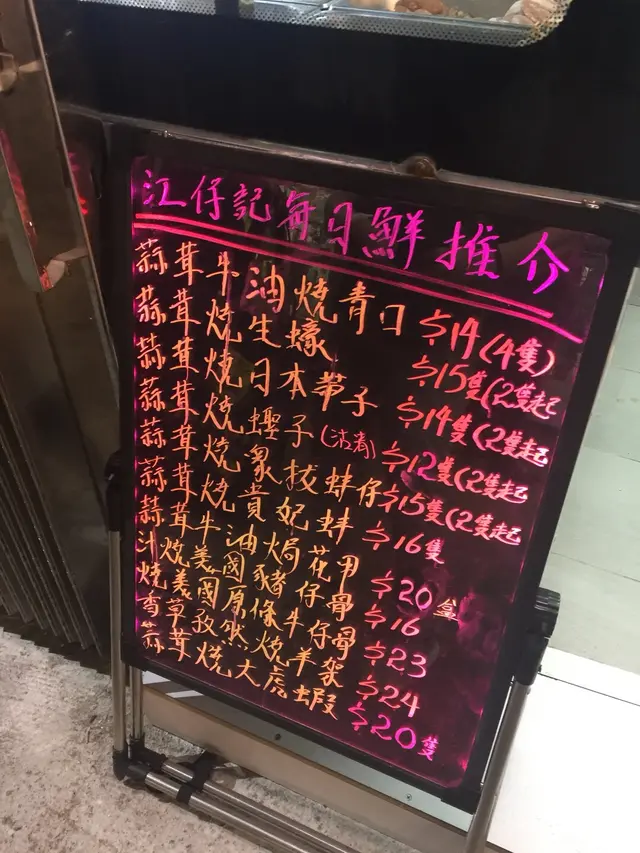 江仔記每日鮮推介
蒜茸牛油燒青口 $14(4隻)
蒜茸燒生蠔 $15隻(2隻起
蒜茸燒日本帶子 $14隻(2隻起
蒜茸燒蟶子(沽清) $12隻(2隻起
蒜茸燒象拔蚌仔 $15隻(2隻起
蒜茸燒貴妃蚌 $16隻
蒜茸牛油焗花甲 $20盒
汁燒美國豬仔骨 $16
燒美國原條牛仔骨 $23
香草孜然燒羊架 $24
蒜茸燒大虎蝦 $20隻